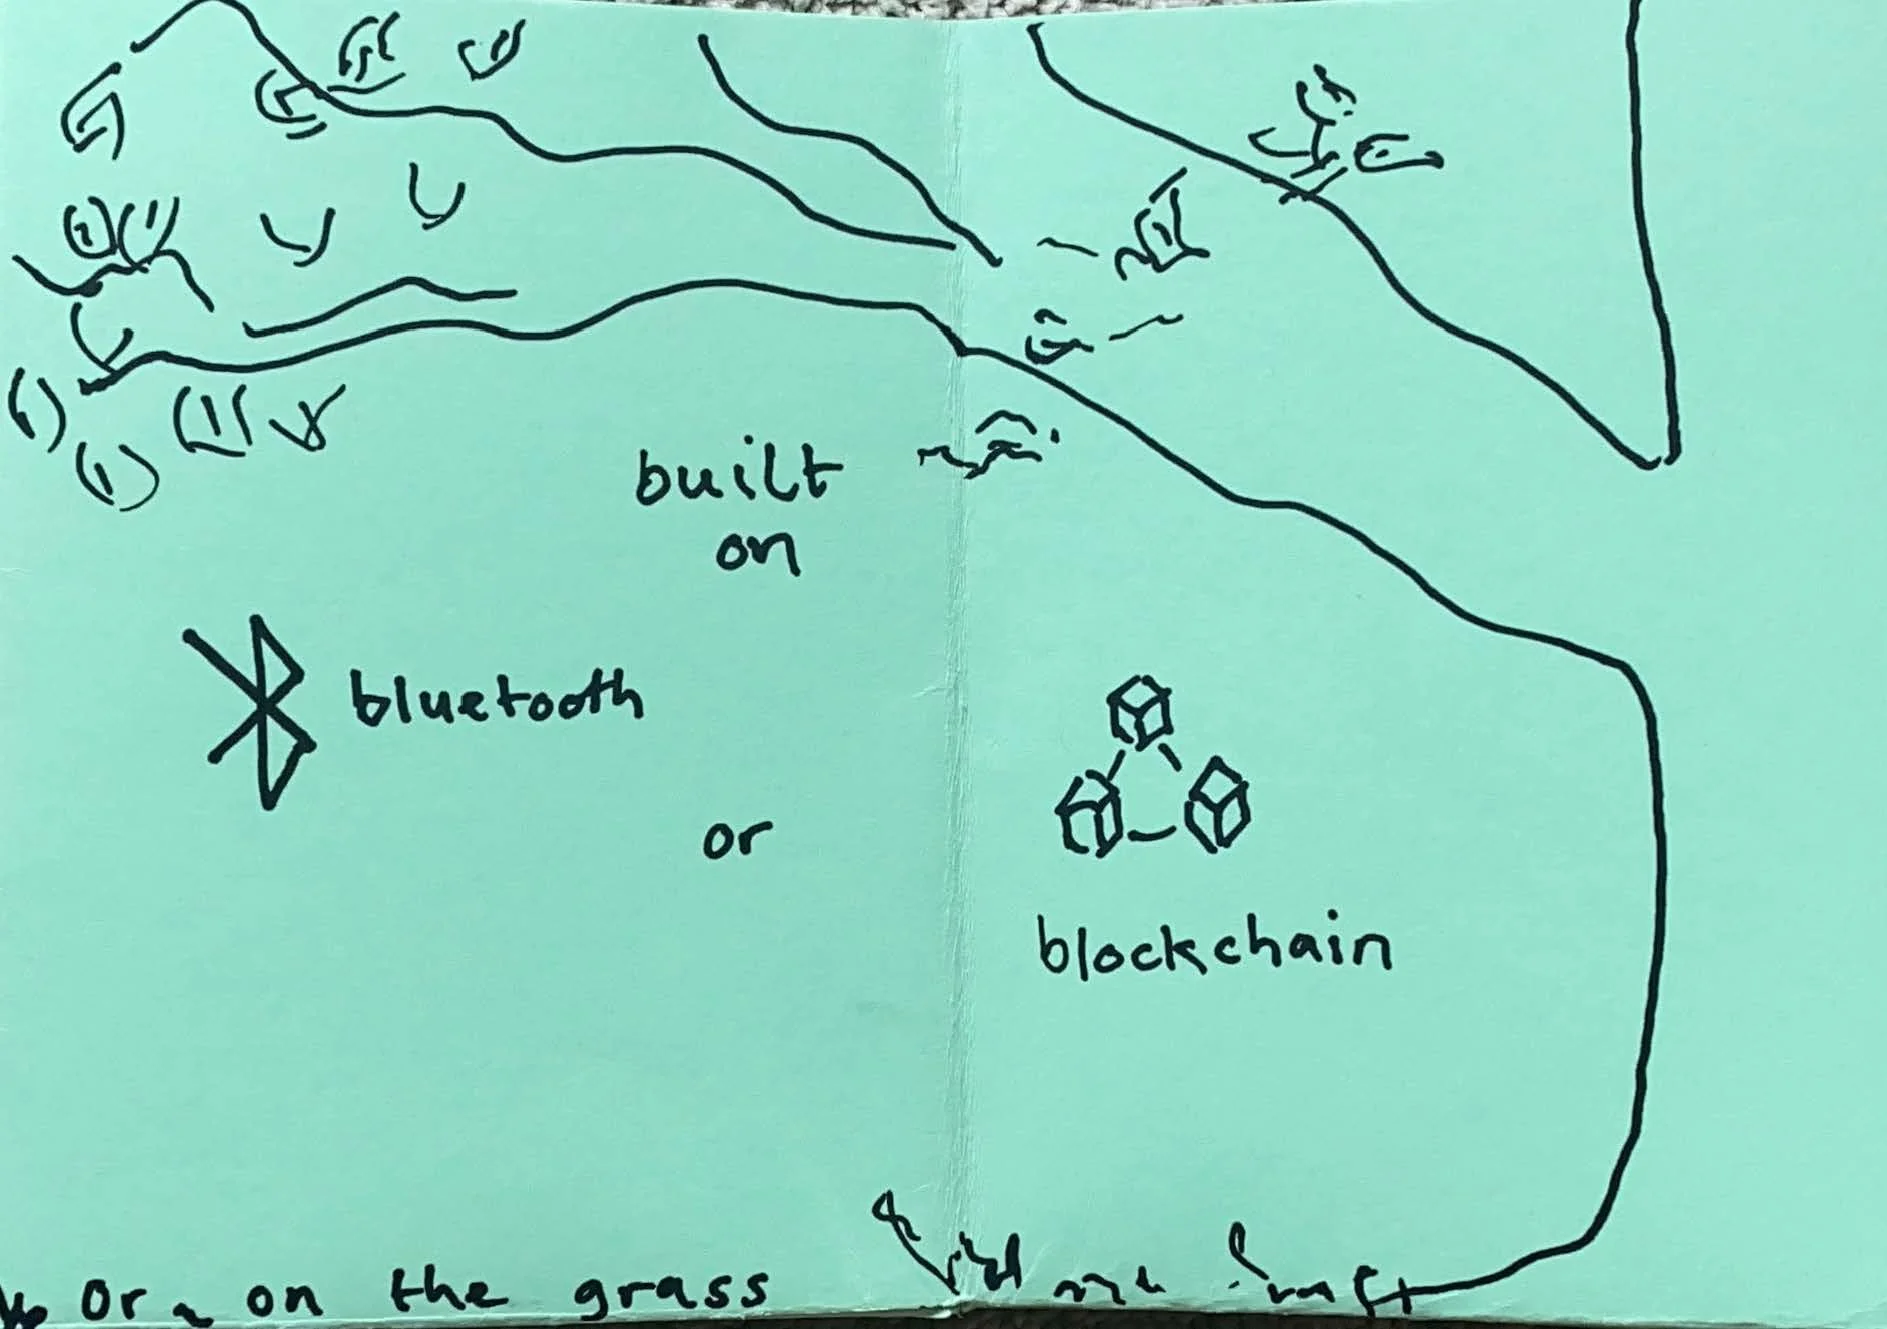 built
on
bluetooth
or
blockchain
or on the grass